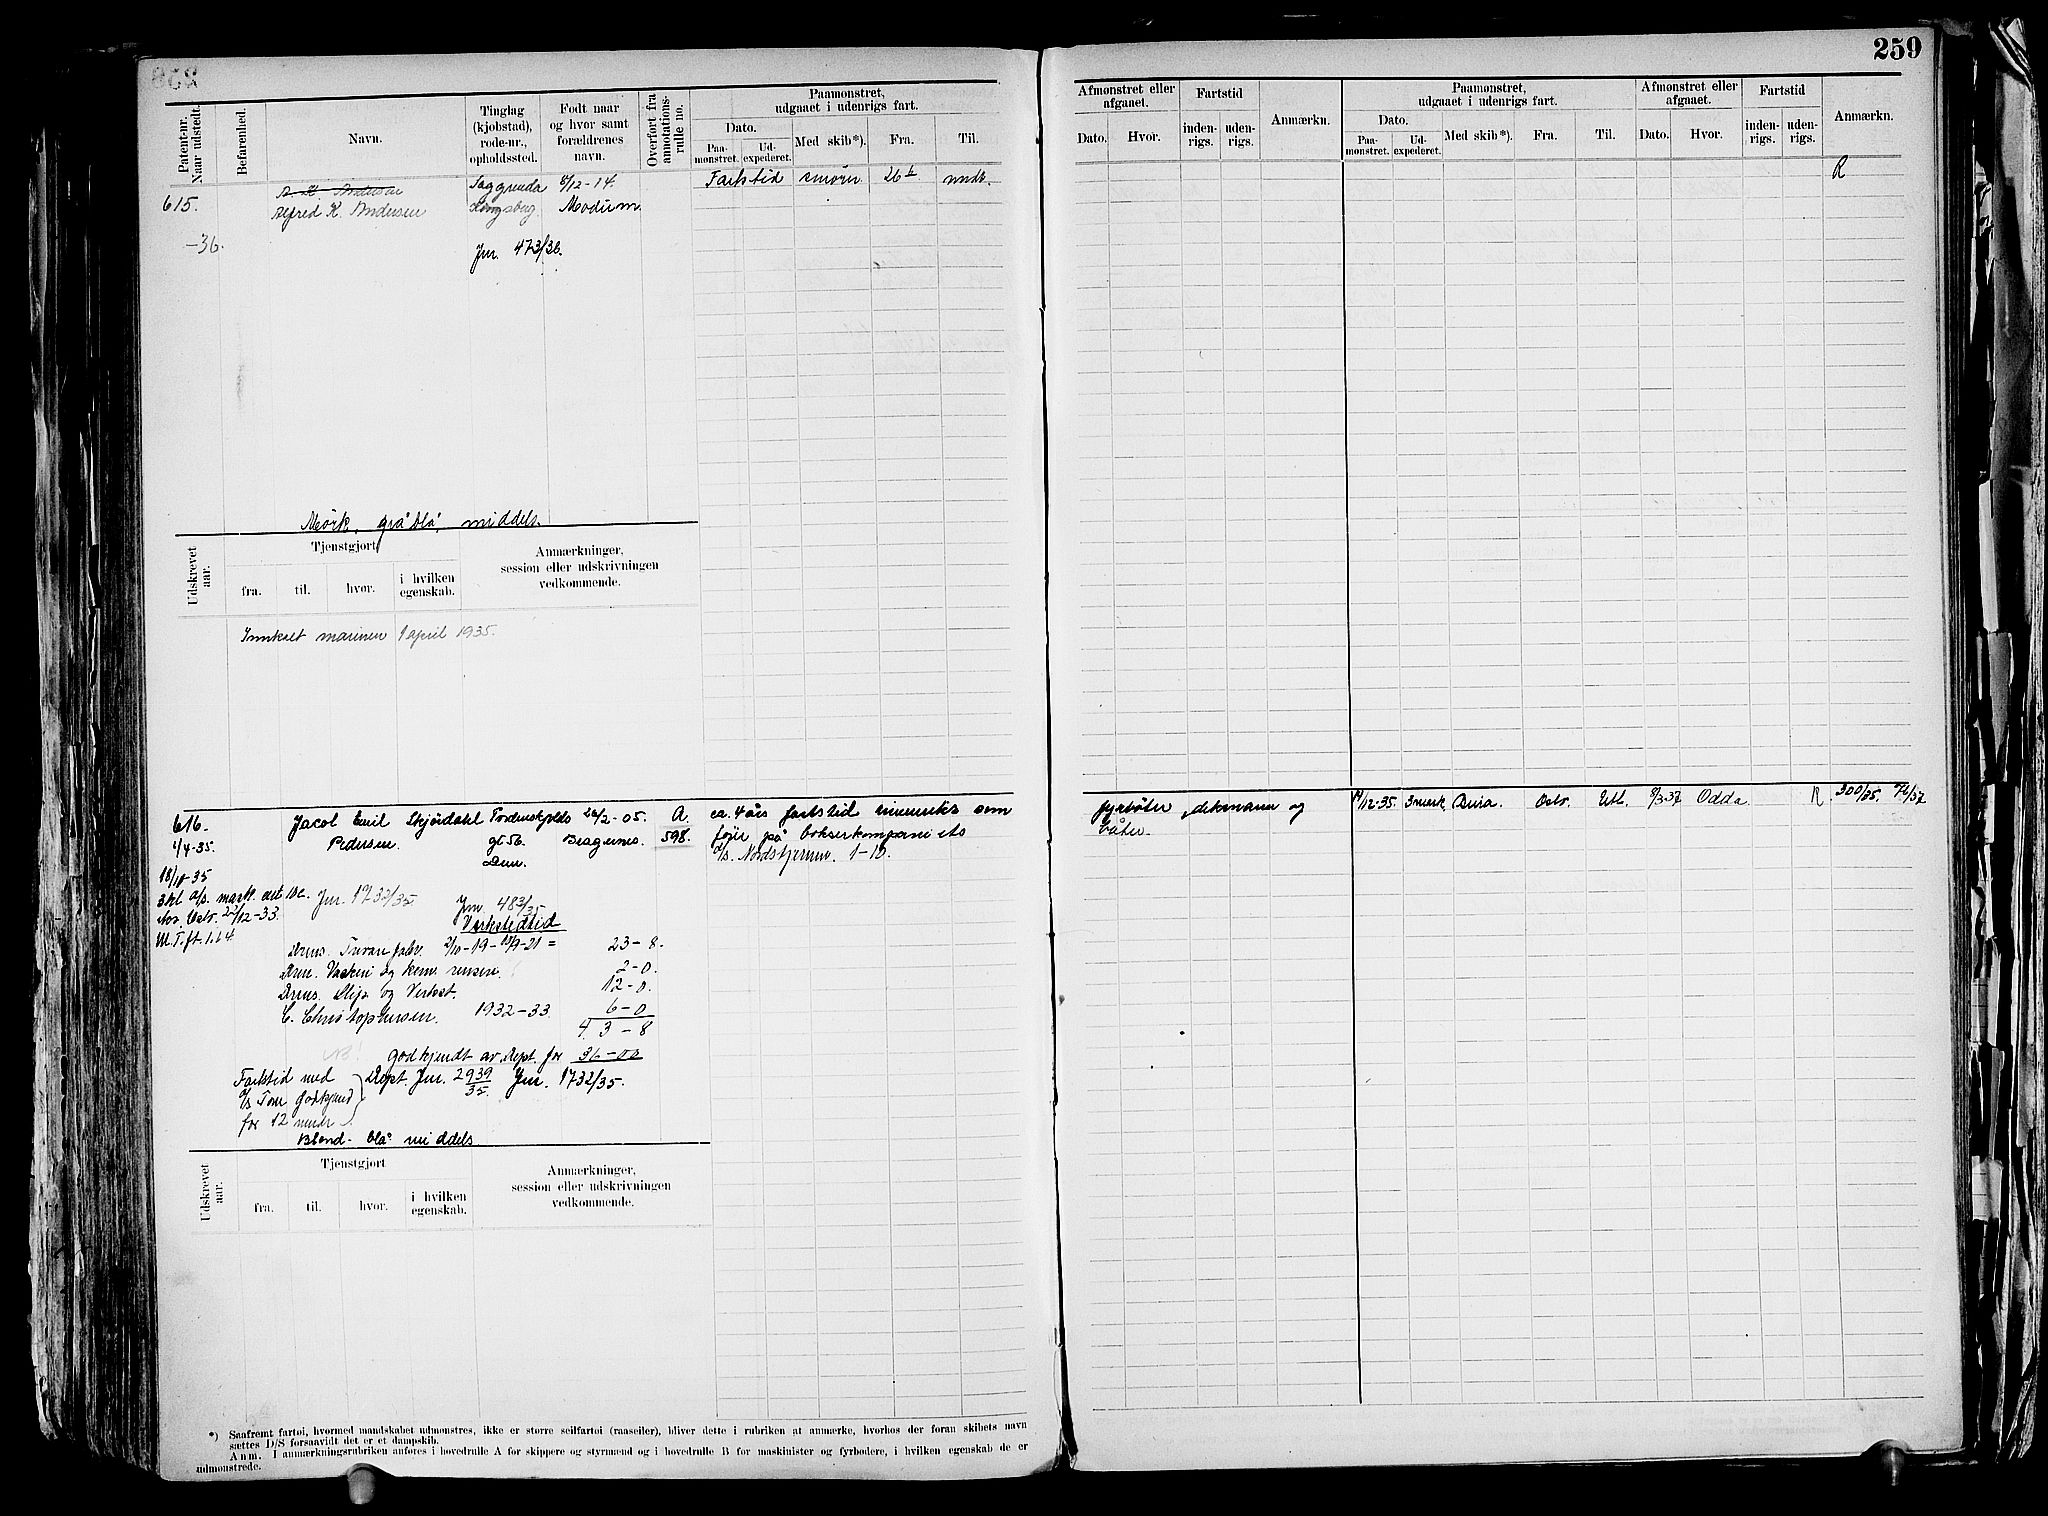 259
Patent-nr. Naar udstedt.
Befarenhed.
Navn.
Tinglag (kjøbstad), rode-nr., opholdssted.
Født naar og hvor samt forældrenes navn.
Overført fra annotations-rulle no.
Paamønstret, udgaaet i udenrigs fart.
Dato.
Paa-mønstret.
Ud-expederet.
Med skib*).
Fra.
Til.
Afmønstret eller afgaaet.
Dato.
Hvor.
Fartstid
inden-rigs.
uden-rigs.
Anmærkn.
Paamønstret, udgaaet i udenrigs fart.
Dato.
Paa-mønstret.
Ud-expederet.
Med skib*).
Fra.
Til.
Afmønstret eller afgaaet.
Dato.
Hvor.
Fartstid
inden-rigs.
uden-rigs.
Anmærkn.
615.
-36.
Alfred K. Andersen
Saggrenda
Kongsberg
8/12-14.
Modum.
Fartstid smører 26 mndr.
R
Jnr. 473/36.
Mørk, gråblå, middels.
Udskrevet aar.
Tjenstgjort
fra.
til.
hvor.
i hvilken egenskab.
Anmærkninger, session eller udskrivningen vedkommende.
Innkalt marinen 1 april 1935.
616.
1/4-35.
18/10-35
Jacob Emil Skjørdahl
Pedersen.
Tordenskjolds
gt 56.
Drm.
24/2-05.
Bragernes.
A.
598.
ca. 4 års fartstid innenriks som
fyrbøter, dekmann og
båter.
14/12-35. 3 mask. Bria. Oslo. Utl. 8/3-37 Odda. R. 300/35. 72/37
Jnr. 1732/35
Jnr. 483/35
Verkstedtid
2/10-19-10/9-21 = 23-8.
2-0.
Drms. Slip og Verkst. 12-0.
C. Christophersen. 1932-33. 6-0
43-8
NB!
Godkjendt av Dept. for 36-00
Fartstid med
D/S Tom godkjend
for 12 mndr.
Dept. Jnr. 2939/35. Jnr. 1732/35.
Blond - blå middels
Udskrevet aar.
Tjenstgjort
fra.
til.
hvor.
i hvilken egenskab.
Anmærkninger, session eller udskrivningen vedkommende.
*) Saafremt fartøi, hvormed mandskabet udmønstres, ikke er større seilfartøi (raaseiler), bliver dette i rubriken at anmærke, hvorhos der foran skibets navn
sættes D/S forsaavidt det er et dampskib.
Anm. I anmærkningsrubriken anføres i hovedrulle A for skippere og styrmænd og i hovedrulle B for maskinister og fyrbødere, i hvilken egenskab de er
udmønstrede.